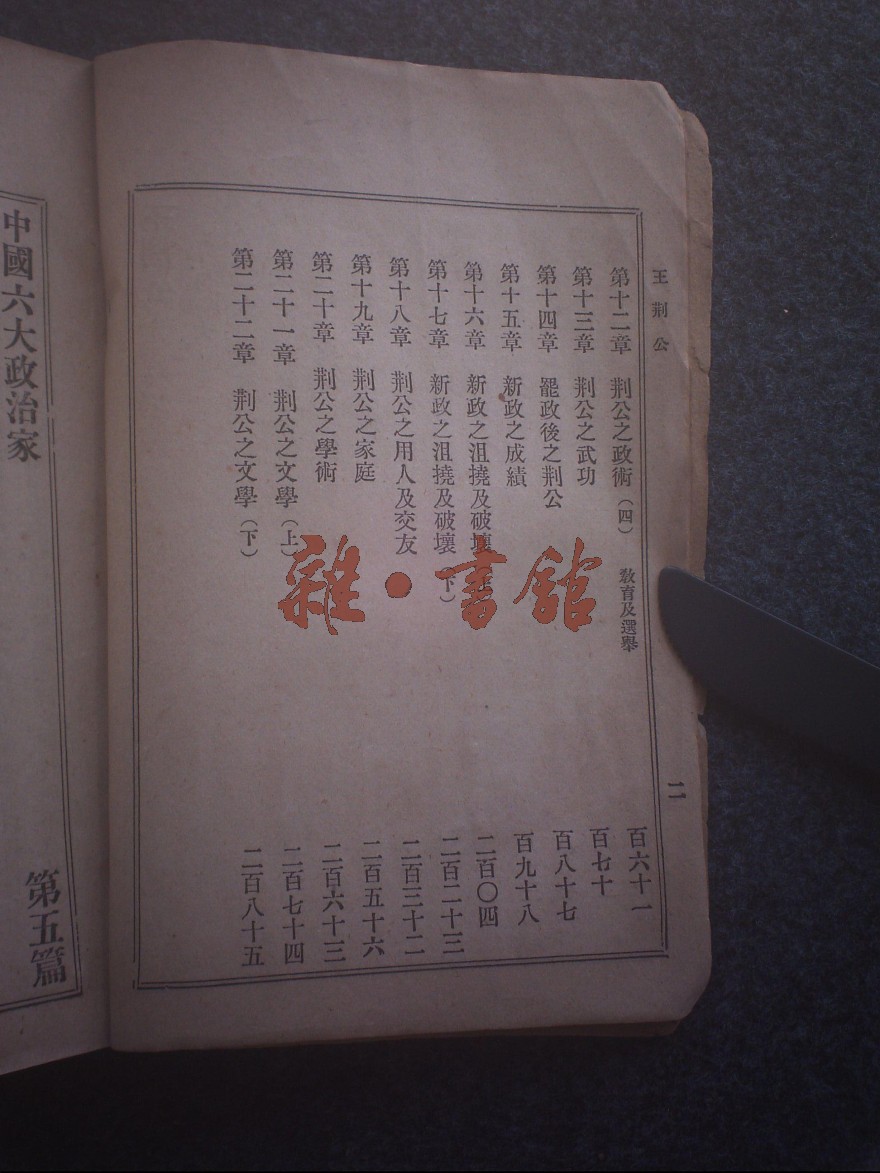 王荊公
二
第十二章 荊公之政術（四） 教育及選舉 百六十一
第十三章 荊公之武功 百七十
第十四章 罷政後之荊公 百八十七
第十五章 新政之成績 百九十八
第十六章 新政之沮撓及破壞 二百〇四
第十七章 新政之沮撓及破壞（下） 二百二十三
第十八章 荊公之用人及交友 二百三十二
第十九章 荊公之家庭 二百五十六
第二十章 荊公之學術 二百六十三
第二十一章 荊公之文學（上） 二百七十四
第二十二章 荊公之文學（下） 二百八十五
中國六大政治家 第五篇
雜·書館